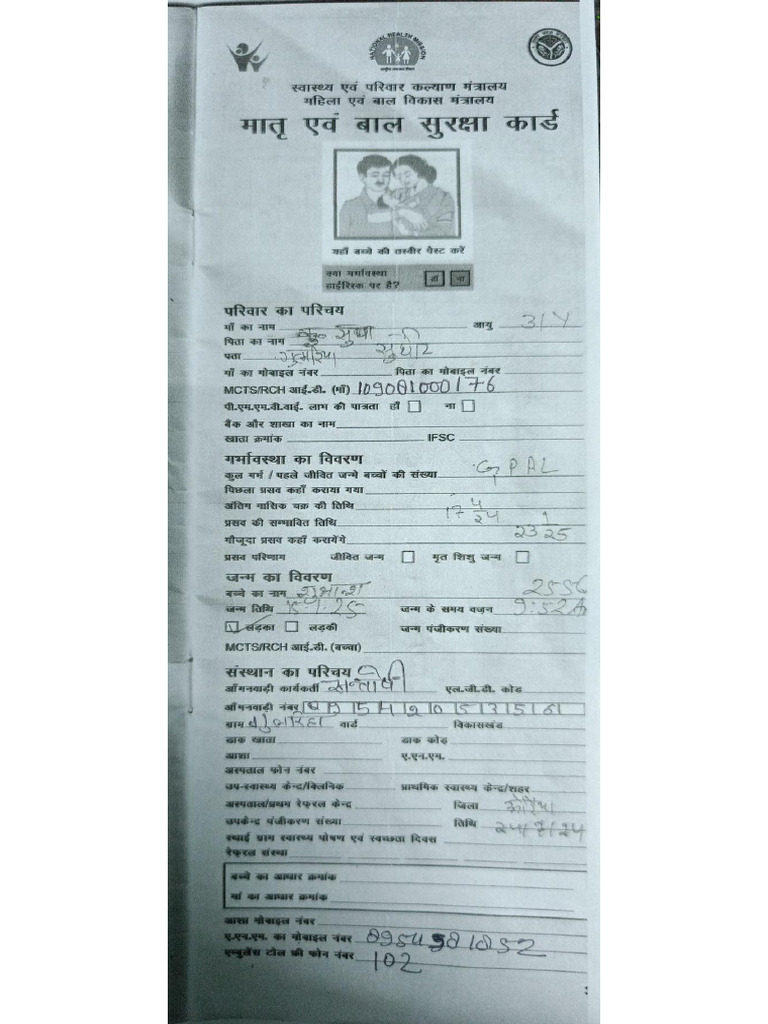 NATIONAL HEALTH MISSION
स्वास्थ्य एवं परिवार कल्याण मंत्रालय
महिला एवं बाल विकास मंत्रालय
मातृ एवं बाल सुरक्षा कार्ड
यहाँ बच्चे की तस्वीर पेस्ट करें
क्या गर्भावस्था हाँ ना
हाईरिस्क पर है?
परिवार का परिचय
माँ का नाम कु० सुधा आयु 31Y
पिता का नाम सुधीर
पता
माँ का मोबाइल नंबर पिता का मोबाइल नंबर
MCTS/RCH आई.डी. (माँ) 109081000176
पी.एम.एम.वी.वाई- लाभ की पात्रता हाँ ना
बैंक और शाखा का नाम
खाता क्रमांक IFSC
गर्भावस्था का विवरण
कुल गर्भ / पहले जीवित जन्मे बच्चों की संख्या G PAL
पिछला प्रसव कहाँ कराया गया
अंतिम मासिक चक्र की तिथि 17 4/24
प्रसव की सम्भावित तिथि 23 1/25
मौजूदा प्रसव कहाँ करायेंगे
प्रसव परिणाम जीवित जन्म मृत शिशु जन्म
जन्म का विवरण
बच्चे का नाम 2556
जन्म तिथि 15-1-25 जन्म के समय वज़न 9:52
लड़का लड़की जन्म पंजीकरण संख्या
MCTS/RCH आई.डी. (बच्चा)
संस्थान का परिचय
आँगनवाड़ी कार्यकर्ती सन्तोषी एल.जी.डी. कोड
आँगनवाड़ी नंबर
ग्राम वार्ड विकासखंड
डाक खाता डाक कोड़
आशा ए.एन.एम.
अस्पताल फोन नंबर
उप-स्वास्थ्य केन्द्र/क्लिनिक प्राथमिक स्वास्थ्य केन्द्र/शहर
अस्पताल/प्रथम रेफ़रल केन्द्र जिला
उपकेन्द्र पंजीकरण संख्या तिथि 24/7/24
स्थाई ग्राम स्वास्थ्य पोषण एवं स्वच्छता दिवस
रेफ़रल संस्था
बच्चे का आधार क्रमांक
मां का आधार क्रमांक
आशा मोबाइल नंबर
ए.एन.एम. का मोबाइल नंबर
एम्बुलेंस टोल फ्री फोन नंबर 102